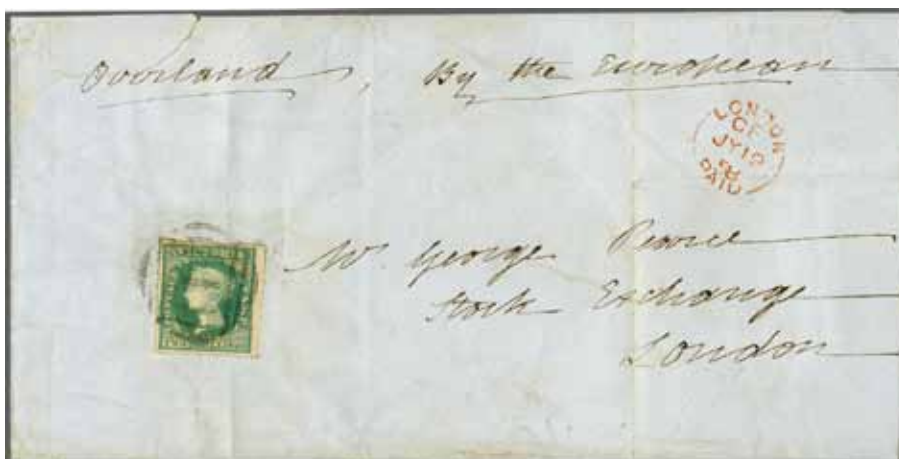 Overland, By the European
LONDON
CF
JY 19
58
PAID
Mr. George Pearce
Stock Exchange
London